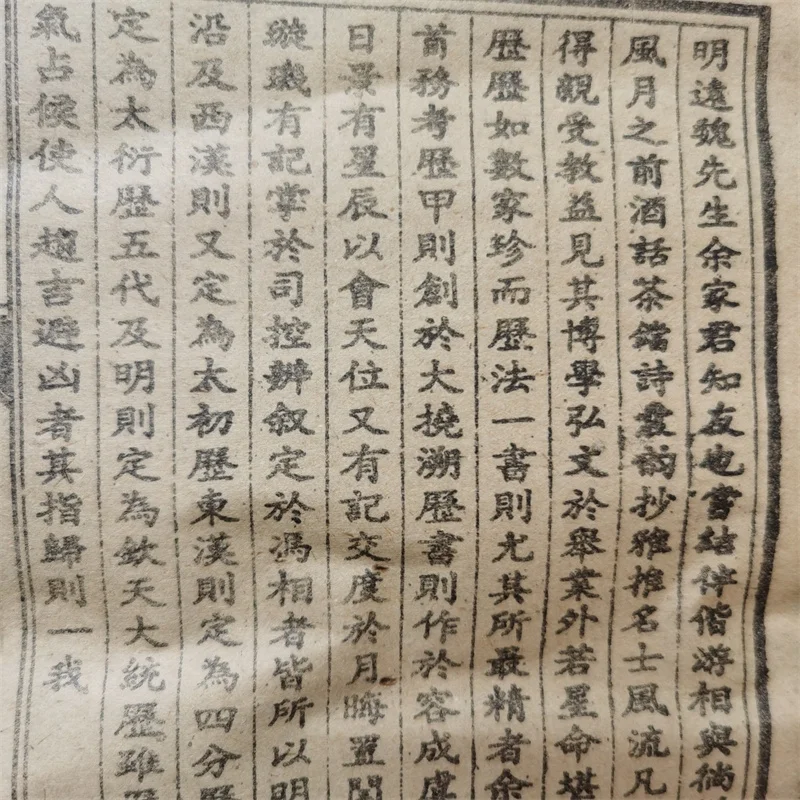 明遠魏先生余家君知友也嘗結伴偕游相與徜
風月之前酒話茶鐺詩囊韵抄雅推名士風流凡
得親受教益見其博學弘文於舉業外若星命堪
歷歷如數家珍而歷法一書則尤其所最精者余
首務考歷甲則創於大撓溯歷書則作於容成虞
日景有星辰以會天位又有記交度於月晦置閏
璇璣有記掌於司控辨叙定於馮相者皆所以明
沿及西漢則又定為太初歷東漢則定為四分歷
定為太衍歷五代及明則定為欽天大統歷雖
氣占候使人趨吉避凶者其指歸則一我